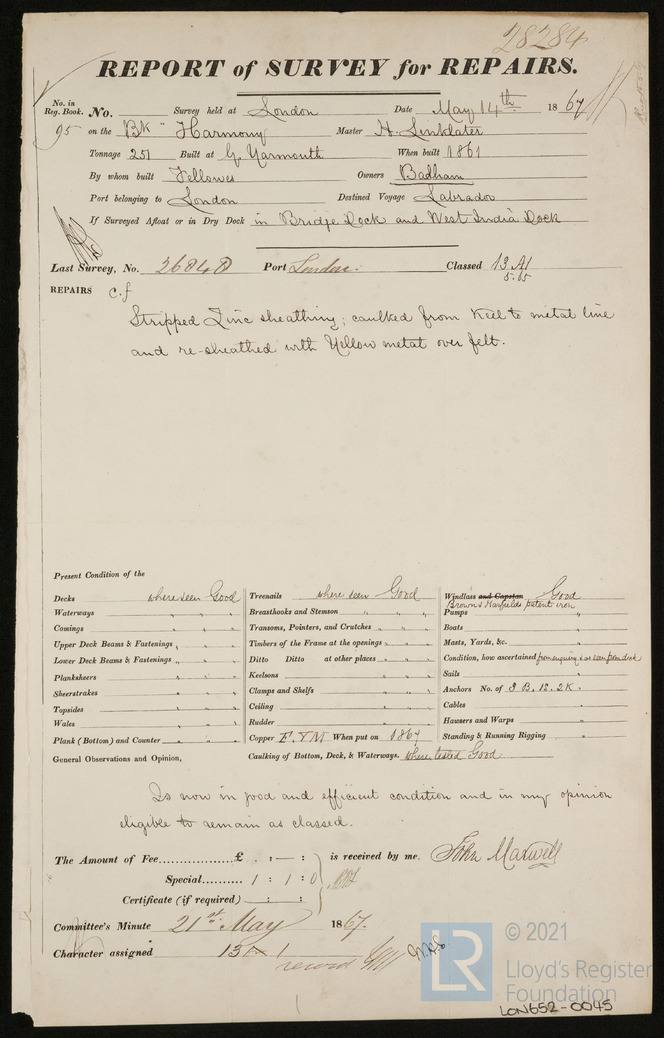 28284
REPORT of SURVEY for REPAIRS.
No. in Reg. Book. No. Survey held at London Date May 14th 1867
95 on the Bk "Harmony Master H. Linklater
Tonnage 251 Built at G. Yarmouth When built 1861
By whom built Fellows Owners Badham
Port belonging to London Destined Voyage Labrador
If Surveyed Afloat or in Dry Dock in Bridge Dock and West India Dock
Last Survey, No. 26848 Port London. Classed 13 A1
5.65
REPAIRS c.f
Stripped Zinc sheathing; caulked from Keel to metal line
and re-sheathed with Yellow metal over felt.
Present Condition of the
Decks where seen Good Treenails where seen Good Windlass and Capstan Good
Waterways " " " Breasthooks and Stemson " " " Pumps Brown & Harfields patent iron "
Comings " " " Transoms, Pointers, and Crutches " " " Boats "
Upper Deck Beams & Fastenings " " " Timbers of the Frame at the openings " " " Masts, Yards, &c. "
Lower Deck Beams & Fastenings " " " Ditto Ditto at other places " " " Condition, how ascertained from enquiry & as seen from deck
Planksheers " " " Keelsons " " " Sails "
Sheerstrakes " " " Clamps and Shelfs " " " Anchors No. of 3 B. 1S. 2K.
Topsides " " " Ceiling " " " Cables "
Wales " " " Rudder " " " Hawsers and Warps "
Plank (Bottom) and Counter " " " Copper F. YM When put on 1867 Standing & Running Rigging "
General Observations and Opinion, Caulking of Bottom, Deck, & Waterways. where tested Good
Is now in good and efficient condition and in my opinion
eligible to remain as classed.
The Amount of Fee............... £ . : — : is received by me. John Maxwell
Special.......... 1 : 1 : 0
Certificate (if required) : :
Committee's Minute 21st May 1867.
Character assigned 13 A 1
record
© 2021
LR
Lloyd's Register
Foundation
LON652-0045